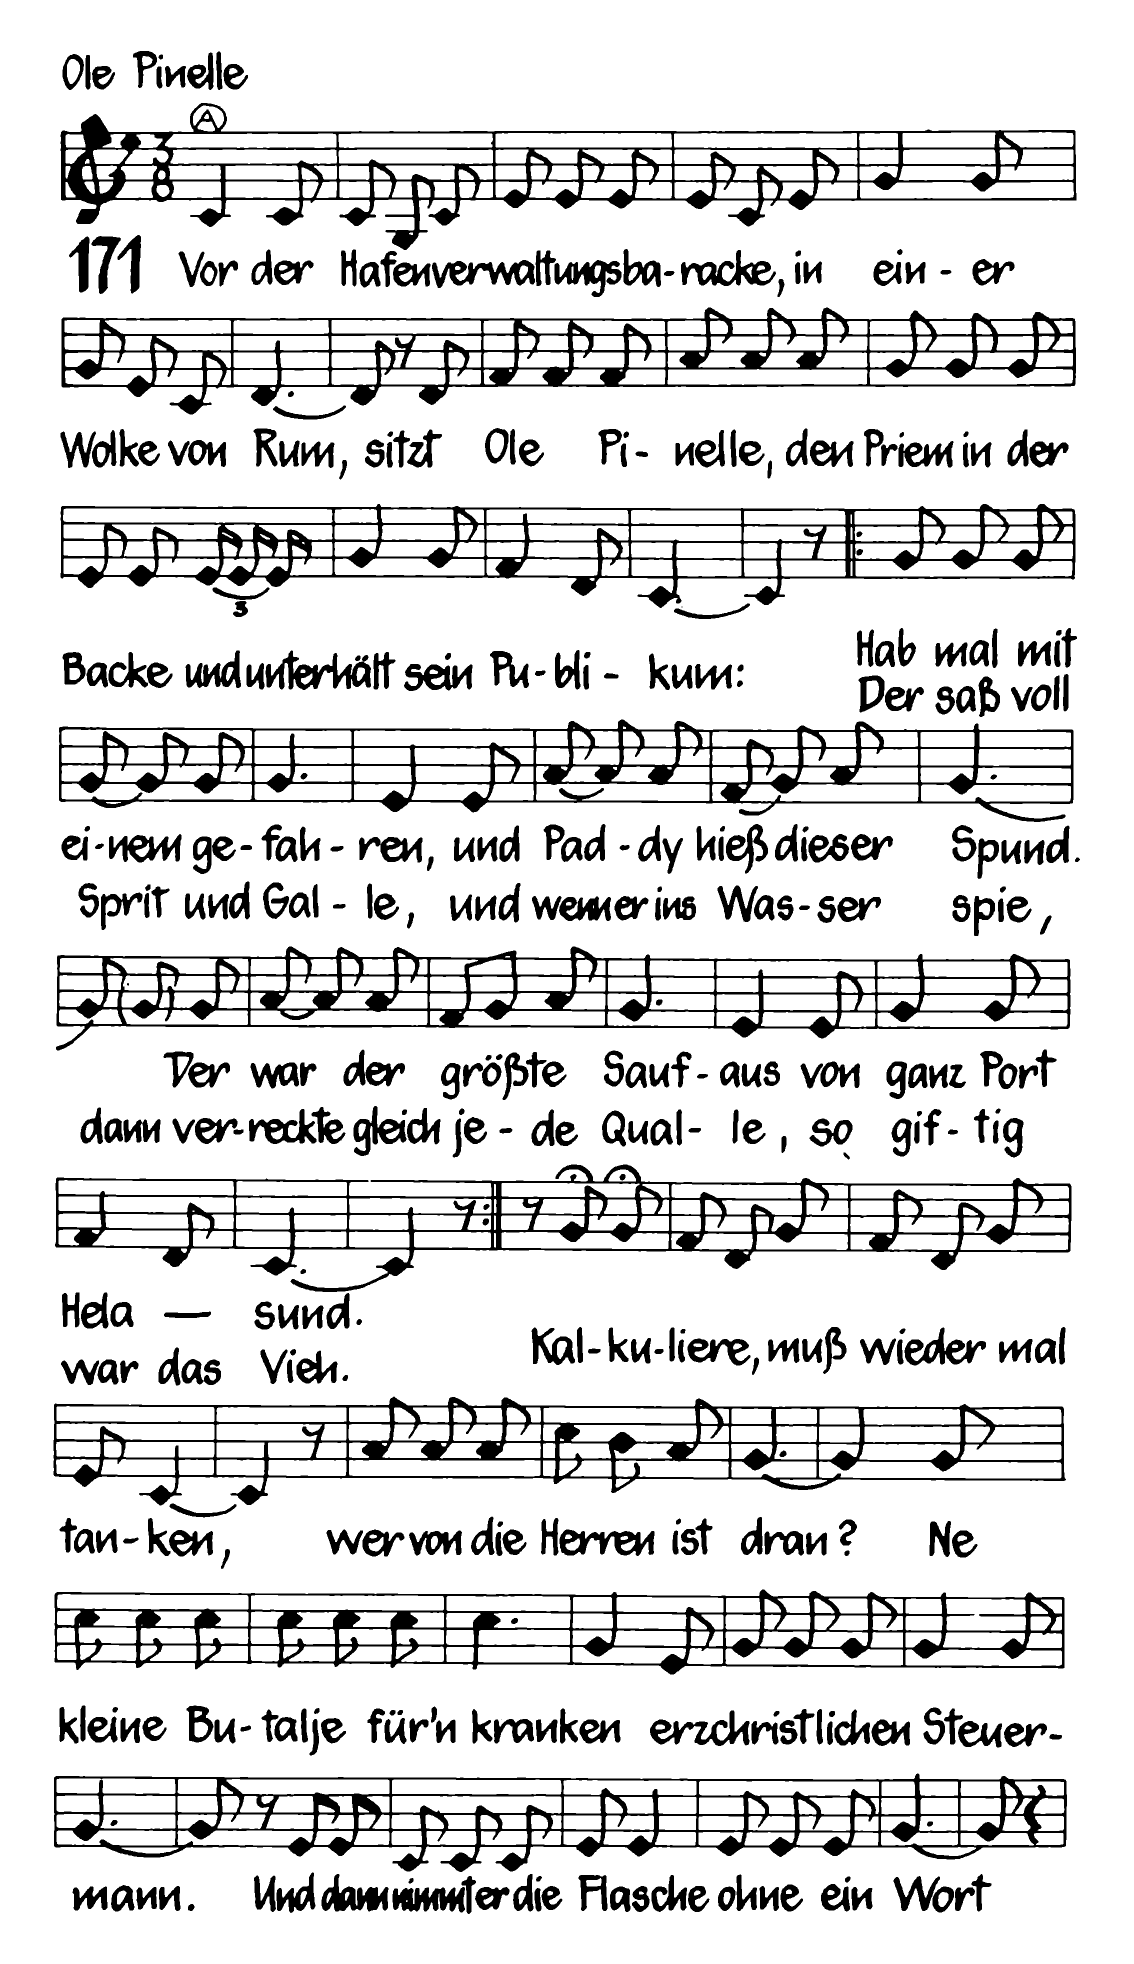 Ole Pinelle
A
3
8
171 Vor der Hafenverwaltungsba-racke, in ein - er
Wolke von Rum, sitzt Ole Pi- nelle, den Priem in der
3
Backe und unterhält sein Pu-bli - kum:
Hab mal mit
Der saß voll
ei-nem ge-fah-ren, und Pad-dy hieß dieser Spund.
Sprit und Gal-le, und wenn er ins Was-ser spie,
Der war der größte Sauf-aus von ganz Port
dann ver-reckte gleich je-de Qual- le, so gif-tig
Hela — sund.
war das Vieh.
Kal-ku-liere, muß wieder mal
tan-ken, wer von die Herren ist dran? Ne
kleine Bu-talje für'n kranken erzchristlichen Steuer-
mann. Und dann nimmt er die Flasche ohne ein Wort